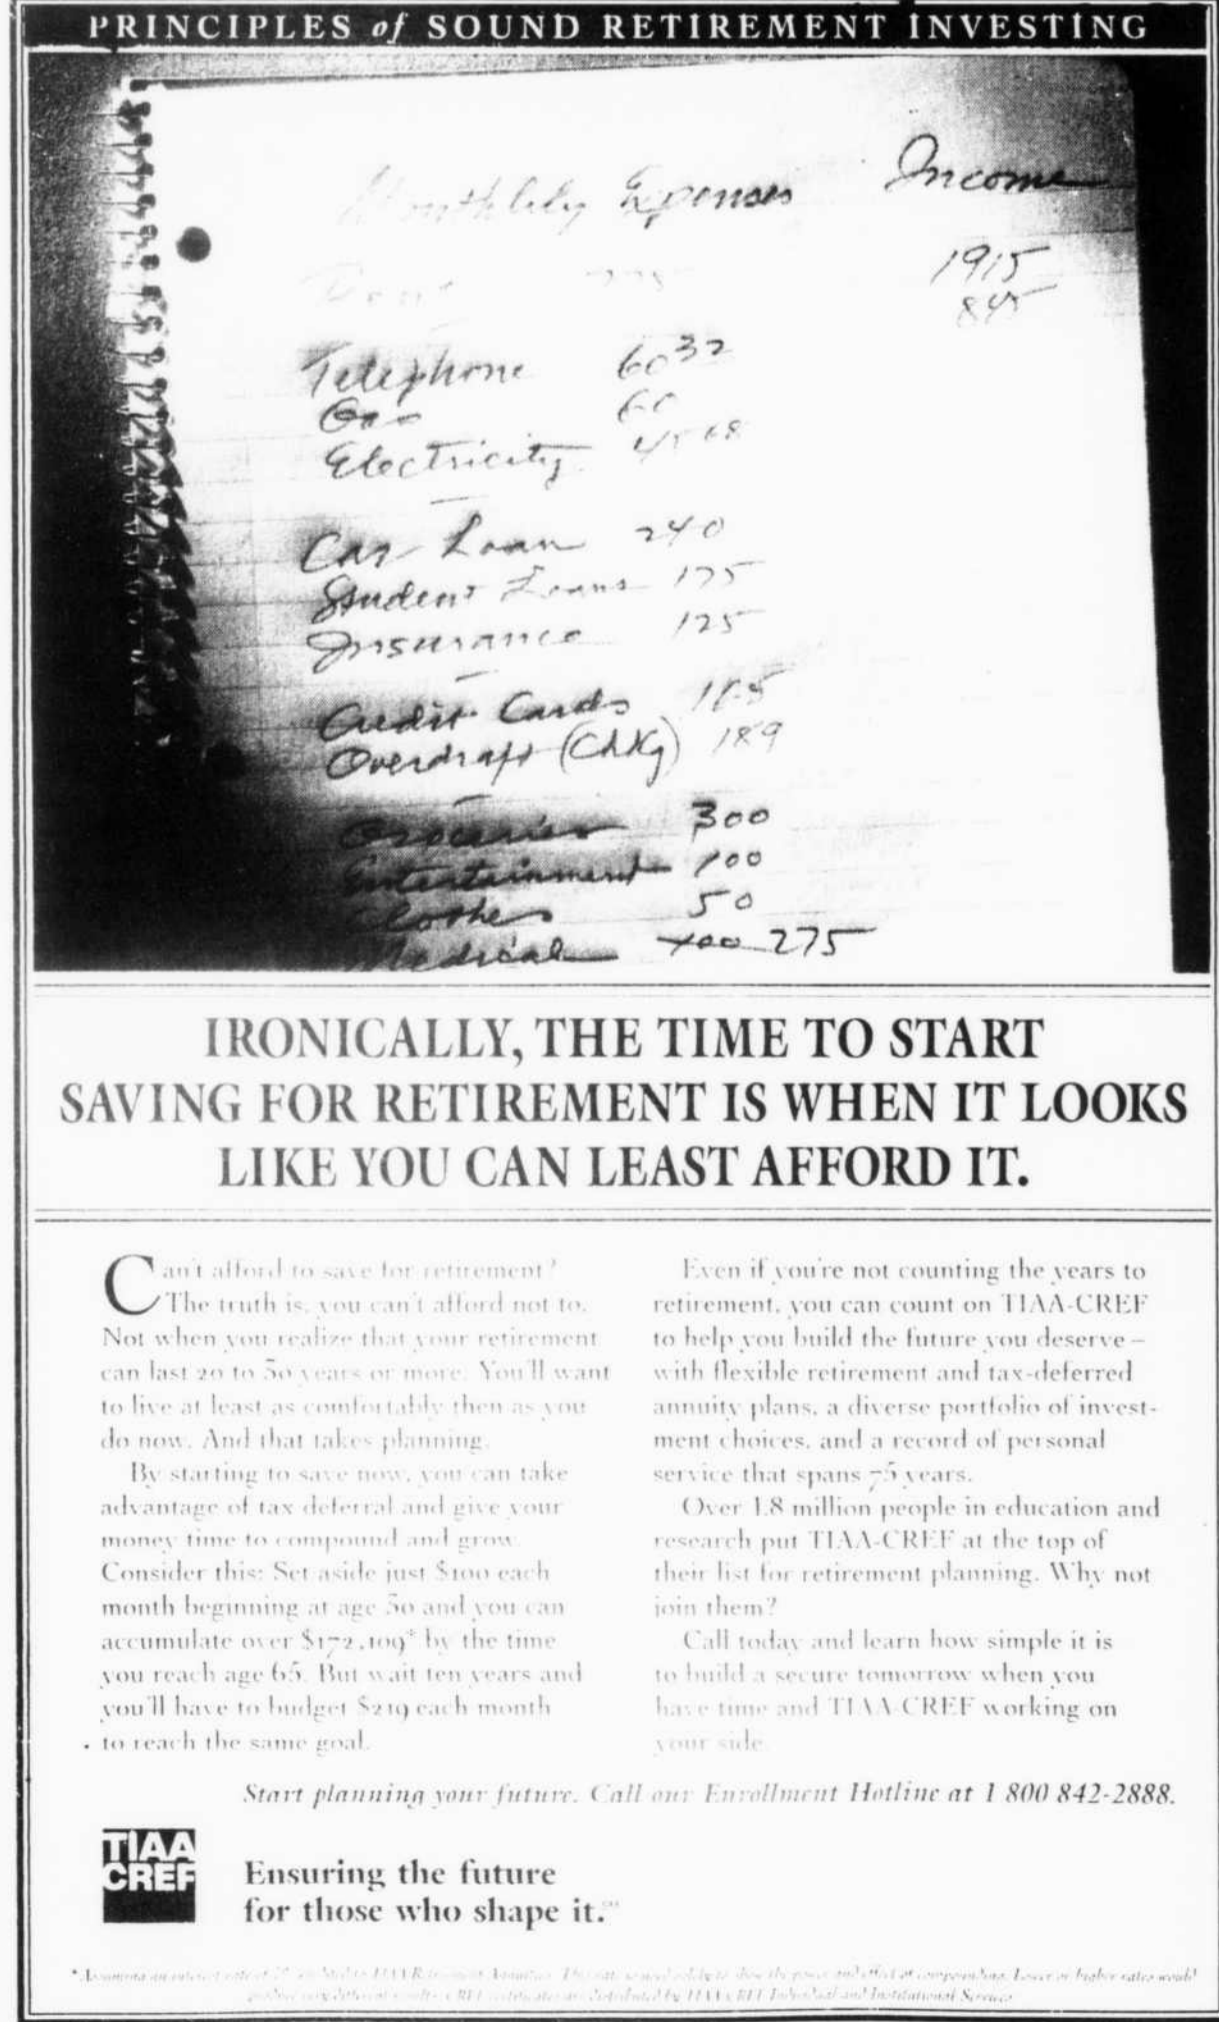 PRINCIPLES of SOUND RETIREMENT INVESTING
Monthlely Expenses Income
Rent 1915
845
Telephone 60 32
Gas 60
Electricity 45 68
Car Loan 240
Student Loans 175
Insurance 125
Credit Cards
Overdraft (Chkg) 189
Groceries 300
Entertainment 100
Clothes 50
Medical 100 275
IRONICALLY, THE TIME TO START
SAVING FOR RETIREMENT IS WHEN IT LOOKS
LIKE YOU CAN LEAST AFFORD IT.
Can't afford to save for retirement?
The truth is, you can't afford not to.
Not when you realize that your retirement
can last 20 to 30 years or more. You'll want
to live at least as comfortably then as you
do now. And that takes planning.
By starting to save now, you can take
advantage of tax deferral and give your
money time to compound and grow.
Consider this: Set aside just $100 each
month beginning at age 30 and you can
accumulate over $172,109* by the time
you reach age 65. But wait ten years and
you'll have to budget $219 each month
to reach the same goal.
Even if you're not counting the years to
retirement, you can count on TIAA-CREF
to help you build the future you deserve—
with flexible retirement and tax-deferred
annuity plans, a diverse portfolio of invest-
ment choices, and a record of personal
service that spans 75 years.
Over 1.8 million people in education and
research put TIAA-CREF at the top of
their list for retirement planning. Why not
join them?
Call today and learn how simple it is
to build a secure tomorrow when you
have time and TIAA-CREF working on
your side.
Start planning your future. Call our Enrollment Hotline at 1 800 842-2888.
TIAA
CREF
Ensuring the future
for those who shape it.℠
*Assuming an interest rate of credited to TIAA Retirement Annuities. This rate is used solely to show the power and effect of compounding. Lower or higher rates would
produce very different results. CREF certificates are distributed by TIAA-CREF Individual and Institutional Services.